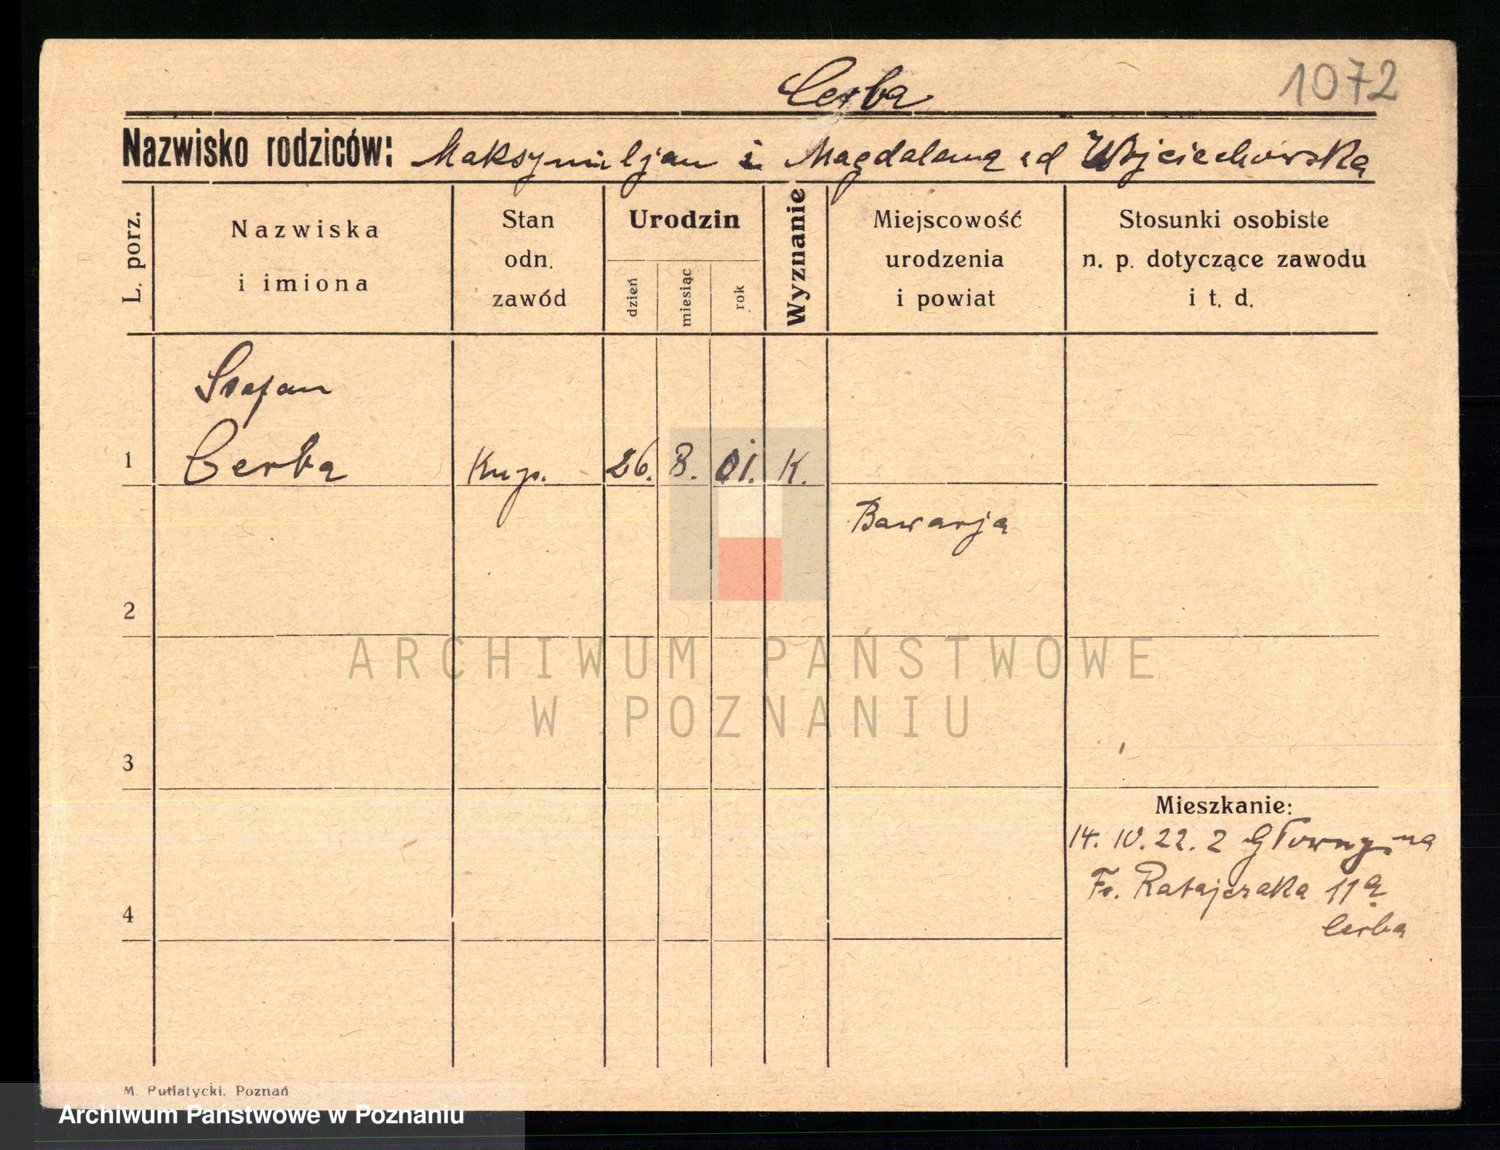 1072
Cerba
Nazwisko rodziców: Maksymiljan i Magdalena Wojciechowska
L. porz.
Nazwiska
i imiona
Stan
odn.
zawód
Urodzin
dzień
miesiąc
rok
Wyznanie
Miejscowość
urodzenia
i powiat
Stosunki osobiste
n. p. dotyczące zawodu
i t. d.
Stefan
1 Cerba Kup. 26. 8. 01. K.
Bawarja
2
ARCHIWUM PAŃSTWOWE
W POZNANIU
3
Mieszkanie:
14. 10. 22. z
Fr. Ratajczaka 11a
Cerba
4
M. Putiatycki. Poznań
Archiwum Państwowe w Poznaniu